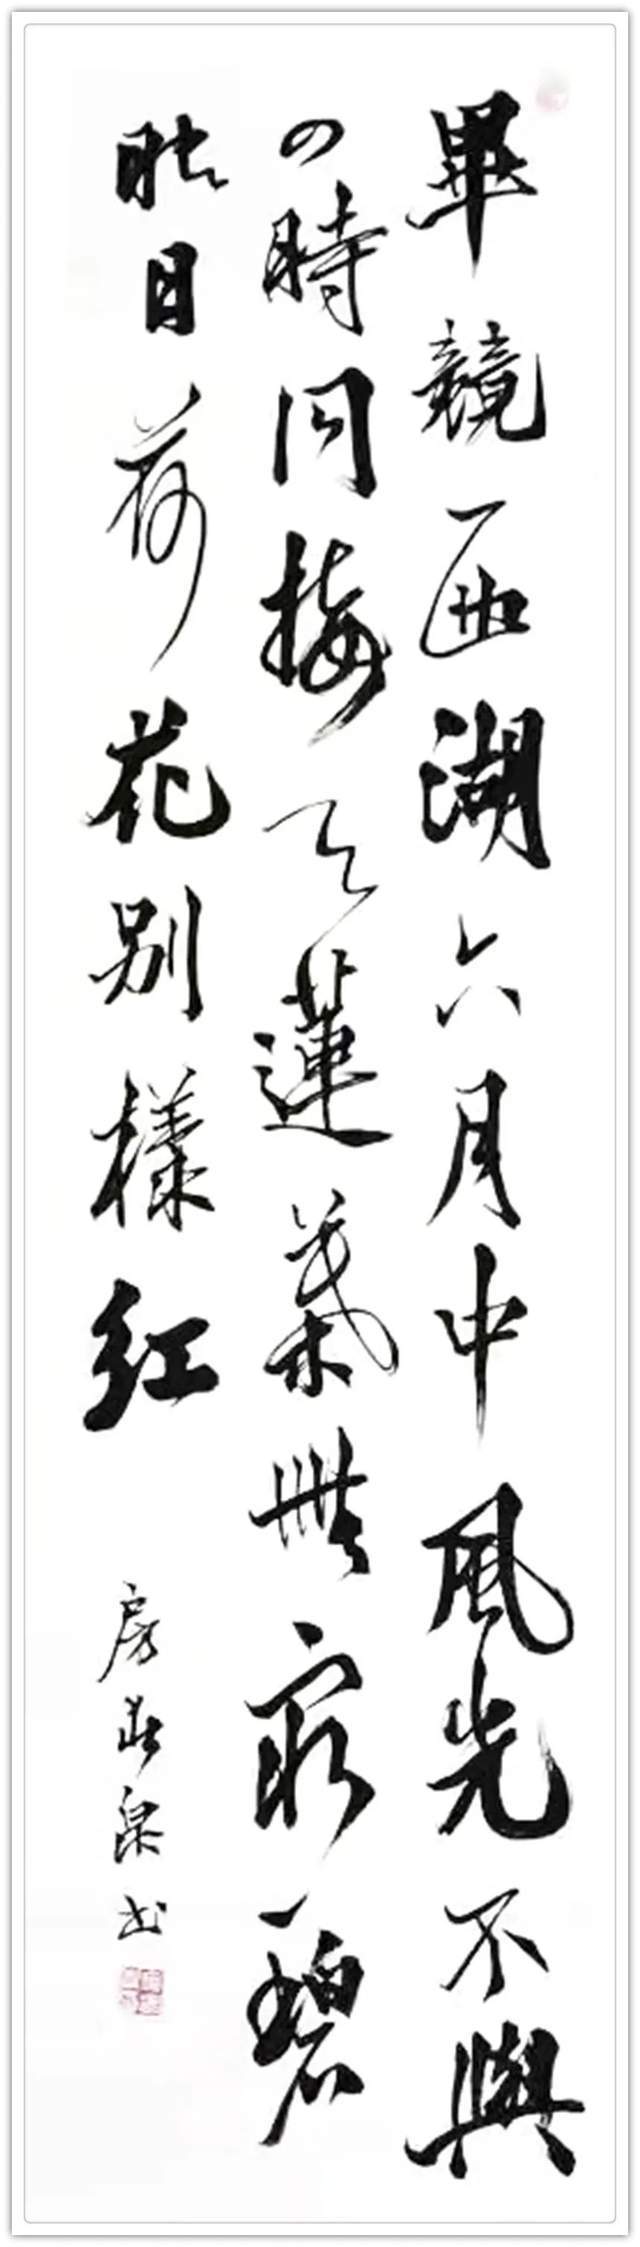 畢競西湖六月中風光不與
四時同接天蓮葉無窮碧
映日荷花別樣紅
房泉书